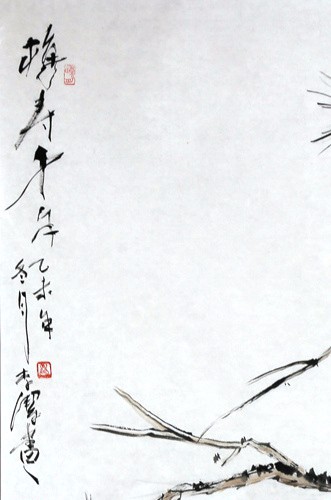 鹤寿千年
乙未年
冬月
李